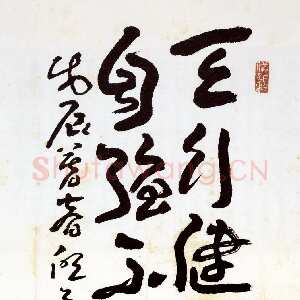 天行健
自強不
戊辰暮春
Shufawang.CN